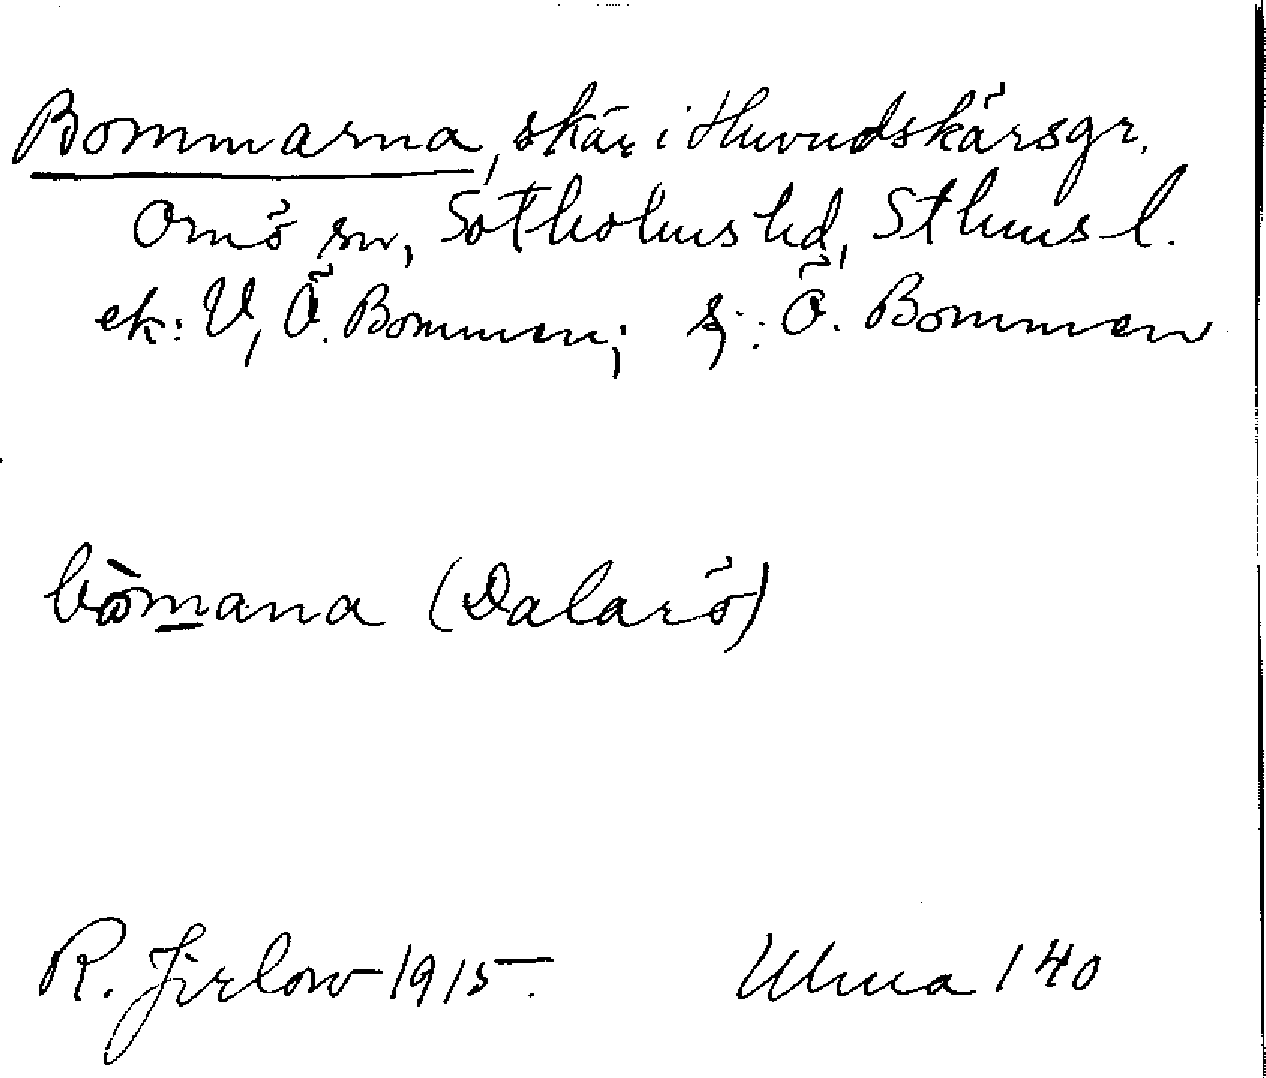 Bommarna, skär i Huvudskärsgr.
Ornö sn, Sotholms hd, Sthms l.
ek: V, Ö. Bommen; sj: Ö. Bommen
bòmana (Dalarö)
R. Jirlow 1915.
Ulma 140